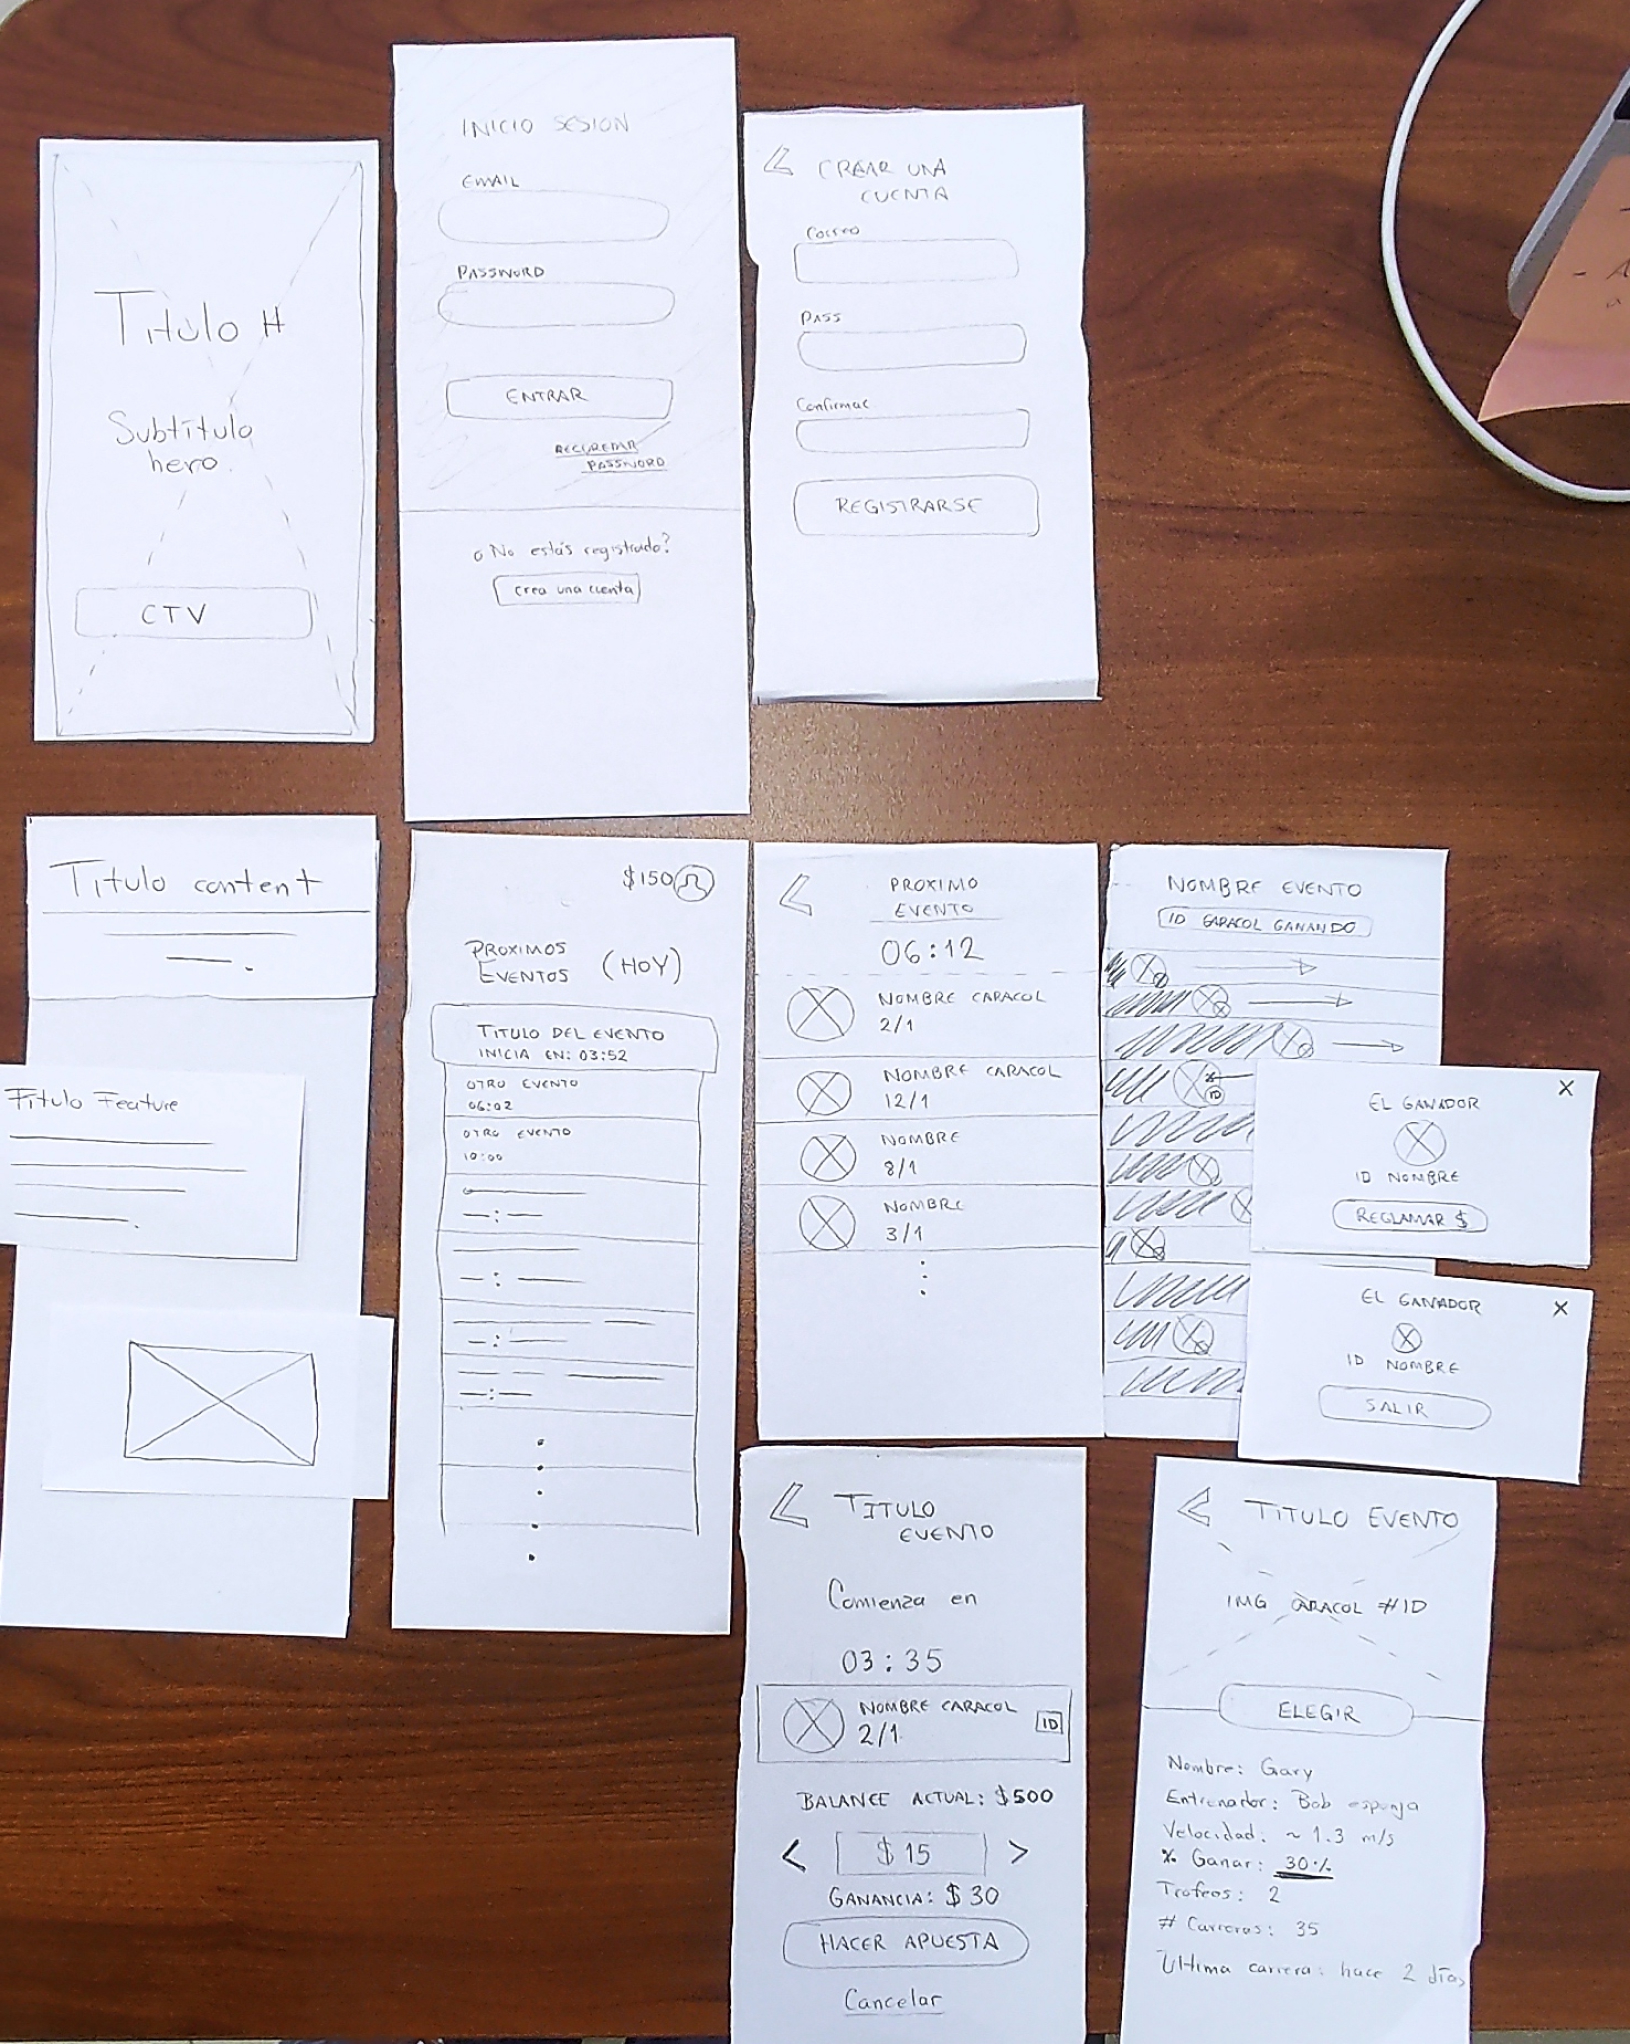 Titulo H
Subtitulo
hero.
CTV
INICIO SESION
EMAIL
PASSWORD
ENTRAR
PASSWORD
o No estás registrado?
crea una cuenta
CREAR UNA
CUENTA
Correo
PASS
Confirmar
REGISTRARSE
Titulo content
Titulo Feature
$150
PROXIMOS
EVENTOS (HOY)
TITULO DEL EVENTO
INICIA EN: 03:52
OTRO EVENTO
06:02
OTRO EVENTO
10:00
PROXIMO
EVENTO
06:12
NOMBRE CARACOL
2/1
NOMBRE CARACOL
12/1
NOMBRE
8/1
NOMBRE
3/1
NOMBRE EVENTO
ID CARACOL GANANDO
ID
X
EL GANADOR
ID NOMBRE
RECLAMAR $
X
EL GANADOR
ID NOMBRE
SALIR
TITULO
EVENTO
Comienza en
03:35
NOMBRE CARACOL
2/1
ID
BALANCE ACTUAL: $500
< $15 >
GANANCIA: $30
HACER APUESTA
Cancelar
TITULO EVENTO
IMG CARACOL #ID
ELEGIR
Nombre: Gary
Entrenador: Bob esponja
Velocidad: ~ 1.3 m/s
% Ganar: 30%
Trofeos: 2
# Carreras: 35
Ultima carrera: hace 2 días